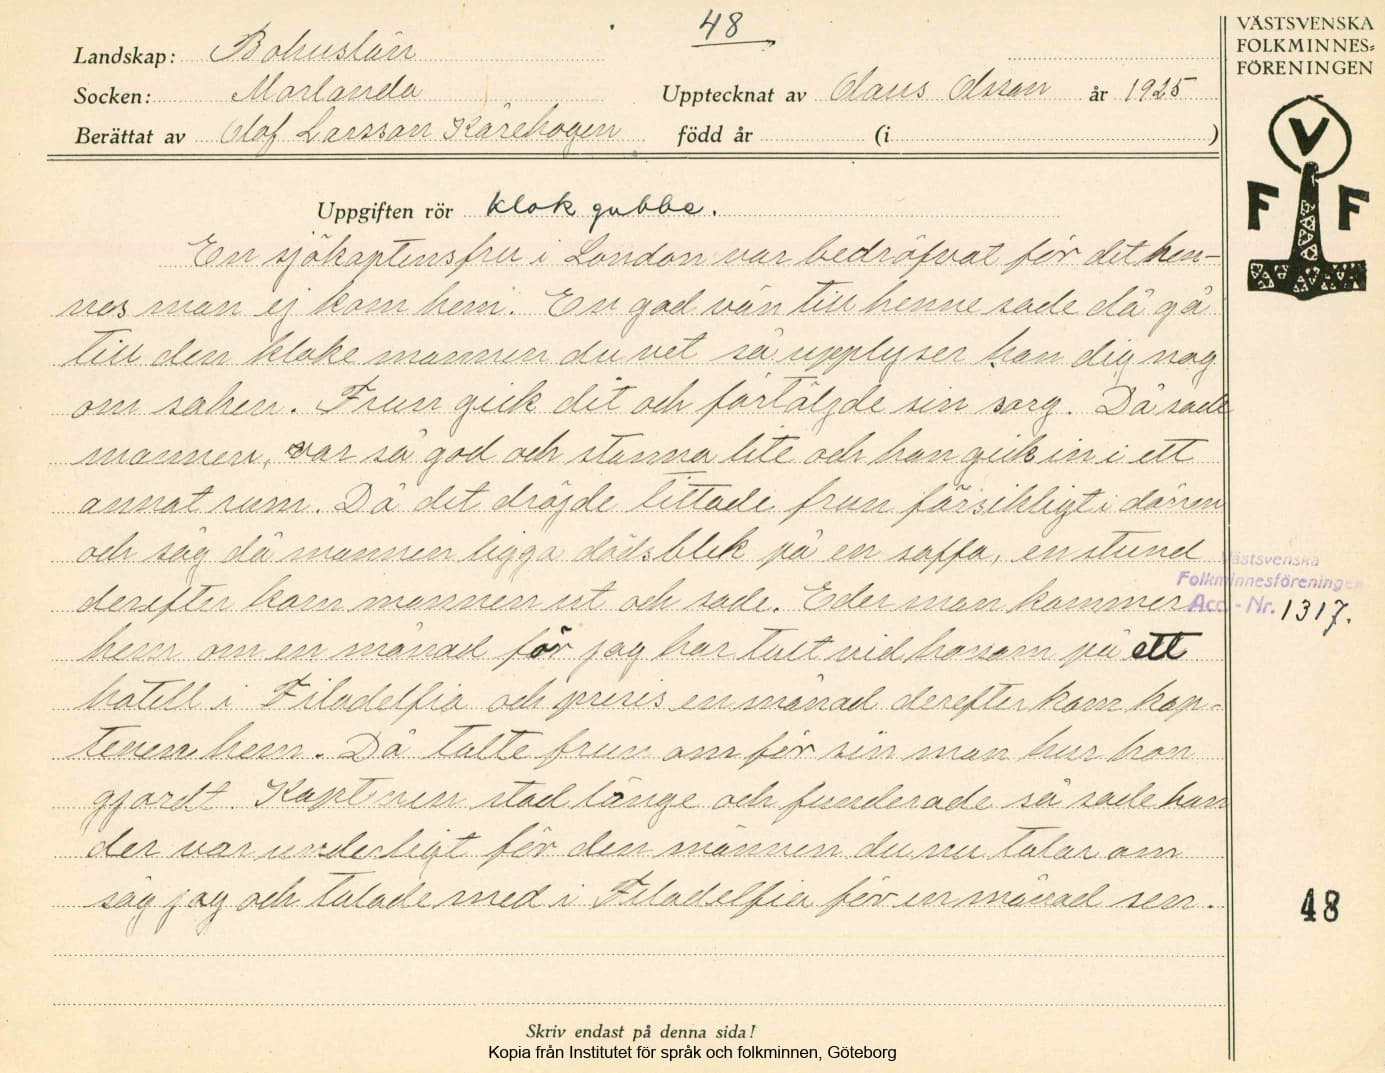 48
Landskap: Bohuslän
Socken: Morlanda
Upptecknat av Olaus Olsson år 1925
Berättat av Olof Larsson Kärehogen född år (i )
VÄSTSVENSKA
FOLKMINNES=
FÖRENINGEN
V
F F
Uppgiften rör klok gubbe.
En sjökaptensfru i London var bedröfvat för det hen-
nes man ej kom hem. En god vän till henne sade då gå
till den kloke mannen du vet så upplyser han dig nog
om saken. Frun gick dit och förtäljde sin sorg. Då sade
mannen, var så god och stanna lite och han gick in i ett
annat rum. Då det dröjde tittade frun försiktigt i dörren
och såg då mannen ligga dödsblek på en soffa, en stund
derefter kom mannen ut och sade. Eder man kommer
hem om en månad för jag har talt vid honom på ett
hotell i Filadelfia och preris en månad derefter kom kap-
tenen hem. Då talte frun om för sin man hur hon
gjordt. Kaptenen stod länge och funderade så sade han
der var underligt för den mannen du nu talar om
såg jag och talade med i Filadelfia för en månad sen.
Västsvenska
Folkminnesföreningen
Acc. - Nr. 1317.
48
Skriv endast på denna sida!
Kopia från Institutet för språk och folkminnen, Göteborg